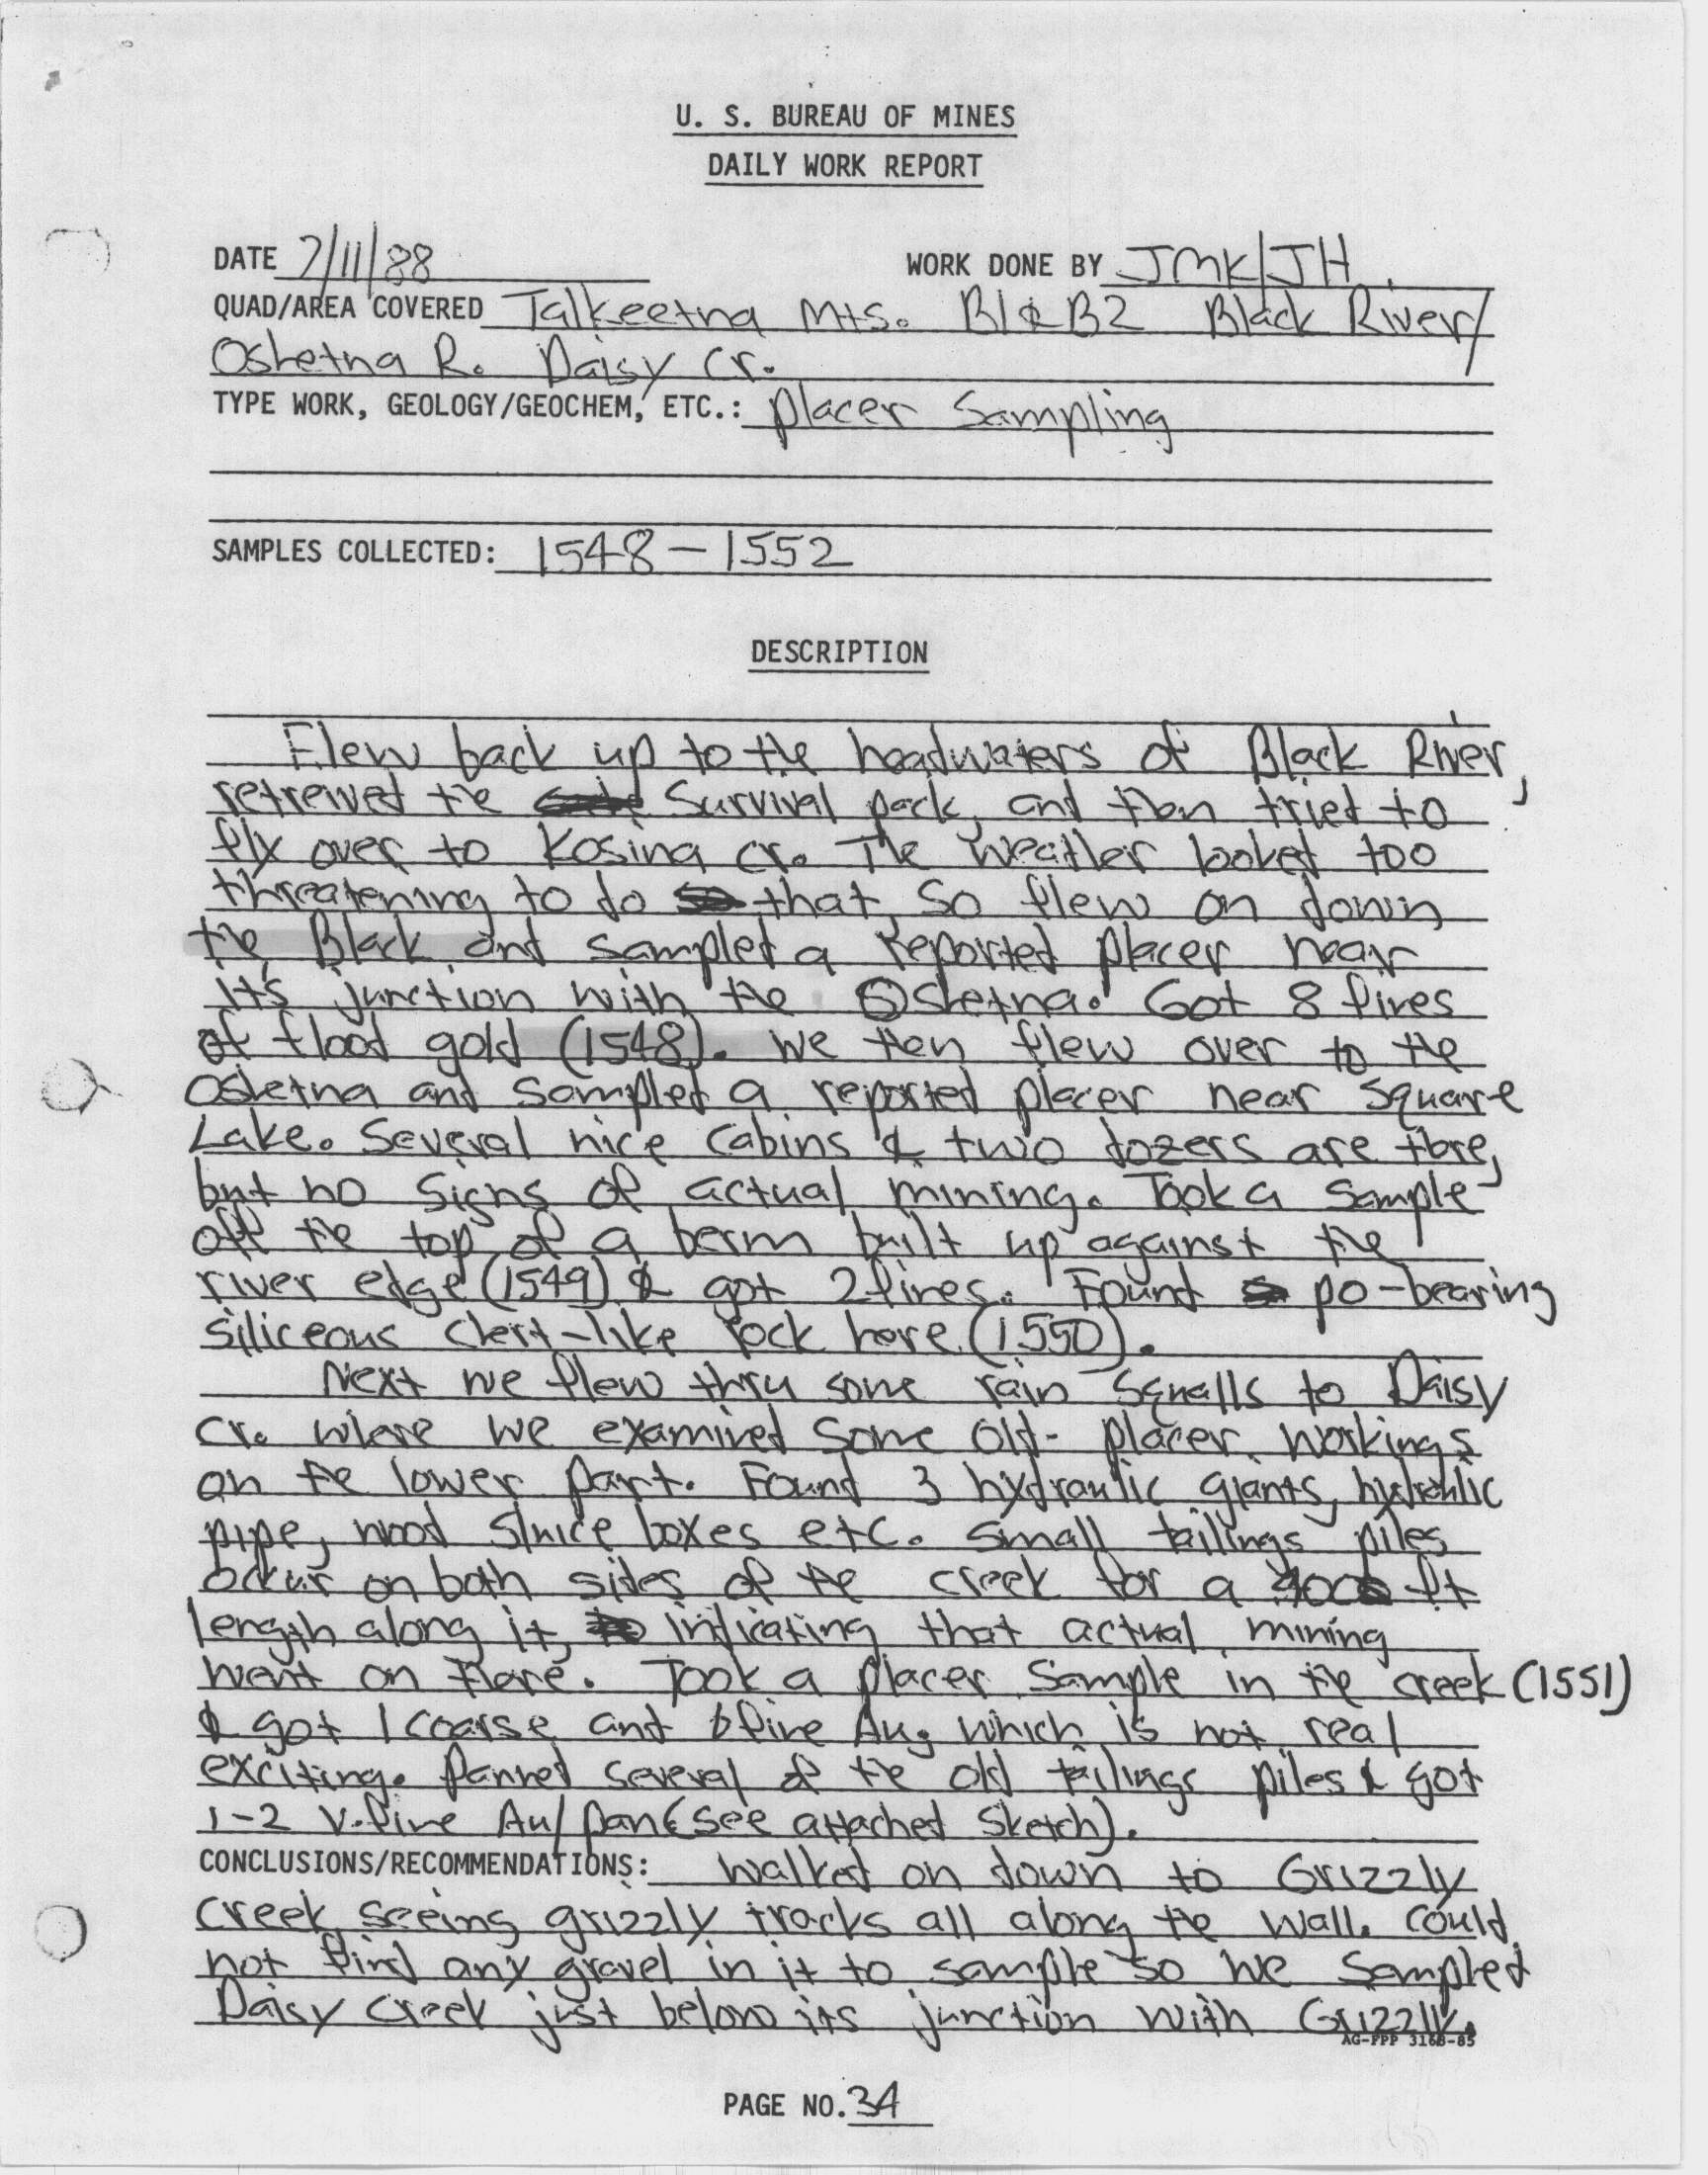 U. S. BUREAU OF MINES
DAILY WORK REPORT
DATE 7/11/88 WORK DONE BY JMK/JH
QUAD/AREA COVERED Talkeetna Mts. B1 & B2 Black River/
Oshetna R. Daisy Cr.
TYPE WORK, GEOLOGY/GEOCHEM, ETC.: placer Sampling
SAMPLES COLLECTED: 1548-1552
DESCRIPTION
Flew back up to the headwaters of Black River,
retreived the Survival pack, and then tried to
fly over to Kosina cr. The weather looked too
threatening to do that, so flew on down
the Black and sampled a reported placer near
it's junction with the Oshetna. Got 8 fines
of flood gold (1548). We then flew over to the
Oshetna and sampled a reported placer near Square
Lake. Several nice cabins & two dozers are there,
but no signs of actual mining. Took a sample
off the top of a berm built up against the
river edge (1549) & got 2 fines. Found po-bearing
siliceous chert-like rock here (1550).
Next we flew thru some rain squalls to Daisy
Cr. where we examined some old- placer workings
on the lower part. Found 3 hydraulic giants, hydraulic
pipe, wood sluice boxes etc. Small tailings piles
occur on both sides of the creek for a ft
length along it, indicating that actual mining
went on there. Took a placer sample in the creek (1551)
& got 1 coarse and 6 fine Au, which is not real
exciting. Panned several of the old tailings piles & got
1-2 v. fine Au/pan (see attached sketch).
CONCLUSIONS/RECOMMENDATIONS: Walked on down to Grizzly
Creek seeing grizzly tracks all along the wall. Could
not find any gravel in it to sample so we sampled
Daisy Creek just below its junction with Grizzly.
AG-FPP 3168-85
PAGE NO. 34